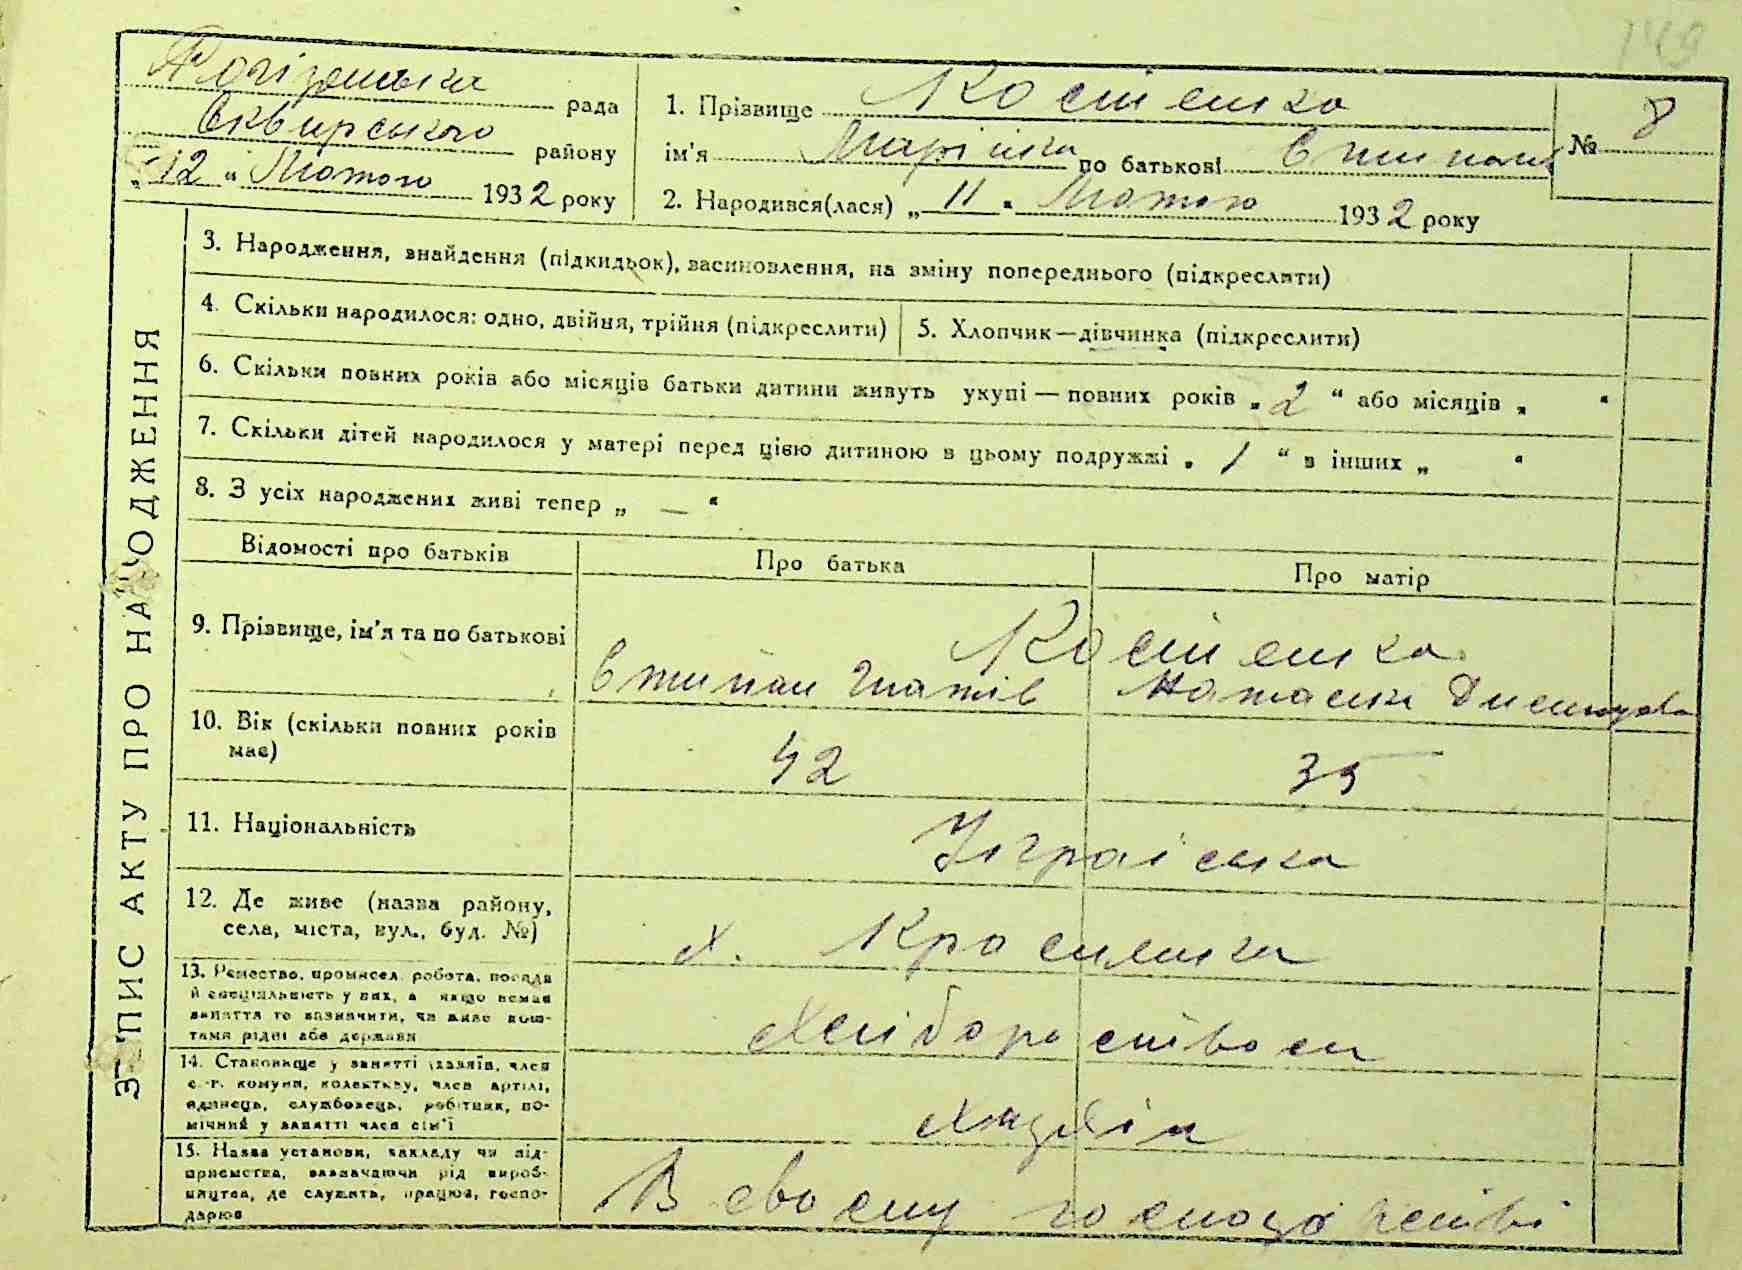 149
Рогізянська рада
Сквирського району
„12" Лютого 1932 року
1. Прізвище Костенко
ім'я Марійка по батькові Степан
№ 8
2. Народився(лася) „11" Лютого 1932 року
ЗАПИС АКТУ ПРО НАРОДЖЕННЯ
3. Народження, знайдення (підкидьок), засиновлення, на зміну попереднього (підкреслити)
4. Скільки народилося: одно, двійня, трійня (підкреслити)
5. Хлопчик—дівчинка (підкреслити)
6. Скільки повних років або місяців батьки дитини живуть укупі — повних років „2" або місяців „ "
7. Скільки дітей народилося у матері перед цією дитиною в цьому подружжі „1" в інших „ "
8. З усіх народжених живі тепер „ — "
Відомості про батьків Про батька Про матір
9. Прізвище, ім'я та по батькові
Костенко
Степан Наташка
10. Вік (скільки повних років
має)
42 35
11. Національність Українська
12. Де живе (назва району,
села, міста, вул., буд. №)
х. Красилівка
13. Ремество, промисел, робота, посада
й спеціяльність у них, а якщо немає
заняття то зазначити, чи живе кош-
тами рідні або держави
Хліборобством
14. Становище у занятті (хазяїн, член
с.-г. комуни, колективу, член артілі,
одинець, службовець, робітник, по-
мічний у занятті член сім'ї
Хазяїн
15. Назва установи, закладу чи під-
приємства, зазначаючи рід вироб-
ництва, де служить, працює, госпо-
дарює
В своєму господарстві